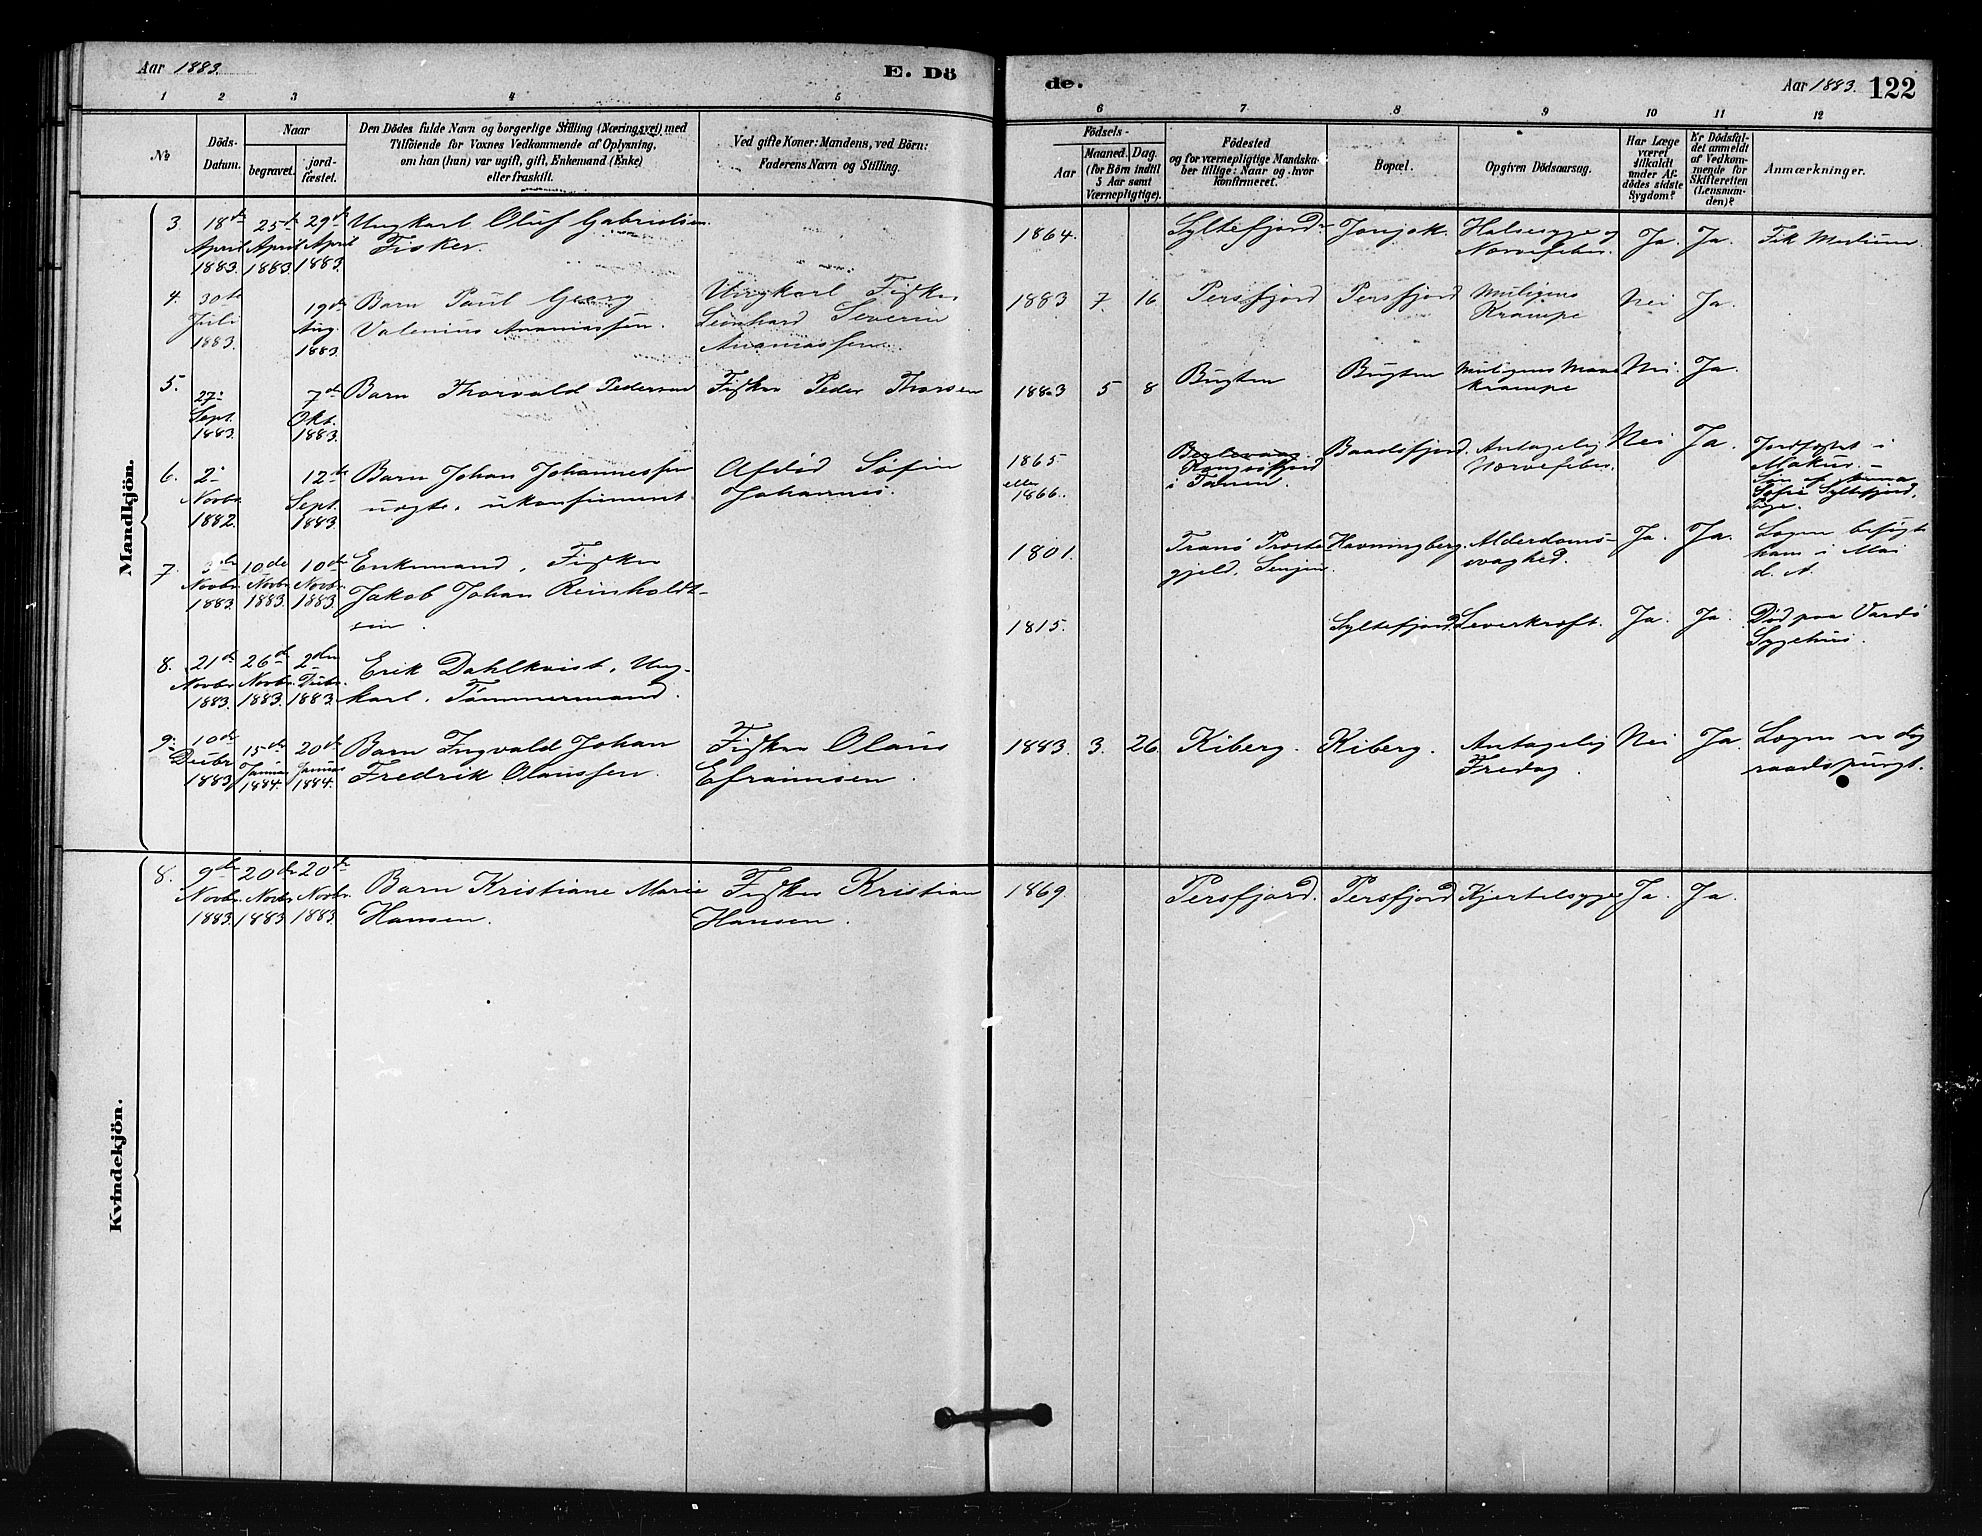 Aar 1883.
E. Dö
de.
Aar 1883. 122
1 2 3 4 5
6 7 8 9 10 11 12
No
Döds-
Datum.
Naar
begravet.
jord-
fæstet.
Den Dödes fulde Navn og borgerlige Stilling (Næringsvei) med
Tilföiende for Voxnes Vedkommende af Oplysning,
om han (hun) var ugift, gift, Enkemand (Enke)
eller fraskilt.
Ved gifte Koner: Mandens, ved Börn:
Faderens Navn og Stilling.
Födsels-
Aar
Maaned. Dag.
(for Börn indtil
5 Aar samt
Værnepligtige).
Födested
og for værnepligtige Mandska-
ber tillige: Naar og hvor
konfirmeret.
Bopæl.
Opgiven Dödsaarsag.
Har Læge
været
tilkaldt
under Af-
dödes sidste
Sygdom?
Er Dödsfal-
det anmeldt
af Vedkom-
mende for
Skifteretten
(Lensman-
den)?
Anmærkninger.
Mandkjön.
3. 18de April 1883. 25de April 1883 29de April 1883.
Ungkarl Oluf Gabrielsen
Fisker.
1864. Syltefjord
Halsesyge og
Nervefeber.
Ja. Ja.
4. 30te Juli 1883. 19de Aug. 1883.
Barn Paul Georg
Valenius Ananiassen.
Ungkarl Fisker
Leonhard Severin
Ananiassen.
1883 7. 16. Persfjord Persfjord
Muligens
Krampe
Nei Ja.
5. 27de Sept. 1883. 7de Okt. 1883.
Barn Thorvald Pedersen
Fisker Peder Thorsen
1883 5 8 Bugten Bugten
Muligens Mave
krampe
Nei. Ja.
6. 2. Novbr. 1882. 12te Sept. 1883.
Barn Johan Johannessen
uægte, ukonfirmeret.
Afdöd Söfin
Johannes.
1865
eller
1866.
Berlevaag
Kongsfjord
i Tanen.
Baadsfjord.
Antagelig
Nervefeber.
Nei Ja.
Jordfæstet i
Makur.
Søn af
Sofie Syltefjord.
7. 3die Novbr. 1883. 10de Novbr. 1883. 10de Novbr. 1883.
Enkemand, Fisker
Jakob Johan Reinholdt-
sen.
1801. Tranö Præste-
gjeld, Senjen.
Havningberg.
Alderdoms-
svaghed.
Ja. Ja.
Lægen besögte
ham i Mai
d. A.
8. 21de Novbr. 1883. 26de Novbr. 1883. 2den Decbr. 1883.
Erik Dahlkvist, Ung-
karl. Tömmermand.
1815. Syltefjord. Leverkræft. Ja. Ja.
Död paa Vardö
Sygehus.
9. 10de Decbr 1883 15de Januar 1884. 20de Januar 1884.
Barn Ingvald Johan
Fredrik Olaussen.
Fisker Olaus
Efraimsen.
1883. 3. 26. Kiberg. Kiberg.
Antagelig
Nei Ja.
Lægen er dog
raadspurgt.
Kvindekjön.
8. 9de Novbr. 1883. 20de Novbr. 1883 20de Novbr. 1883.
Barn Kristiane Marie
Hansen.
Fisker Kristian
Hansen.
1869. Persfjord. Persfjord Kjertelsyge Ja. Ja.